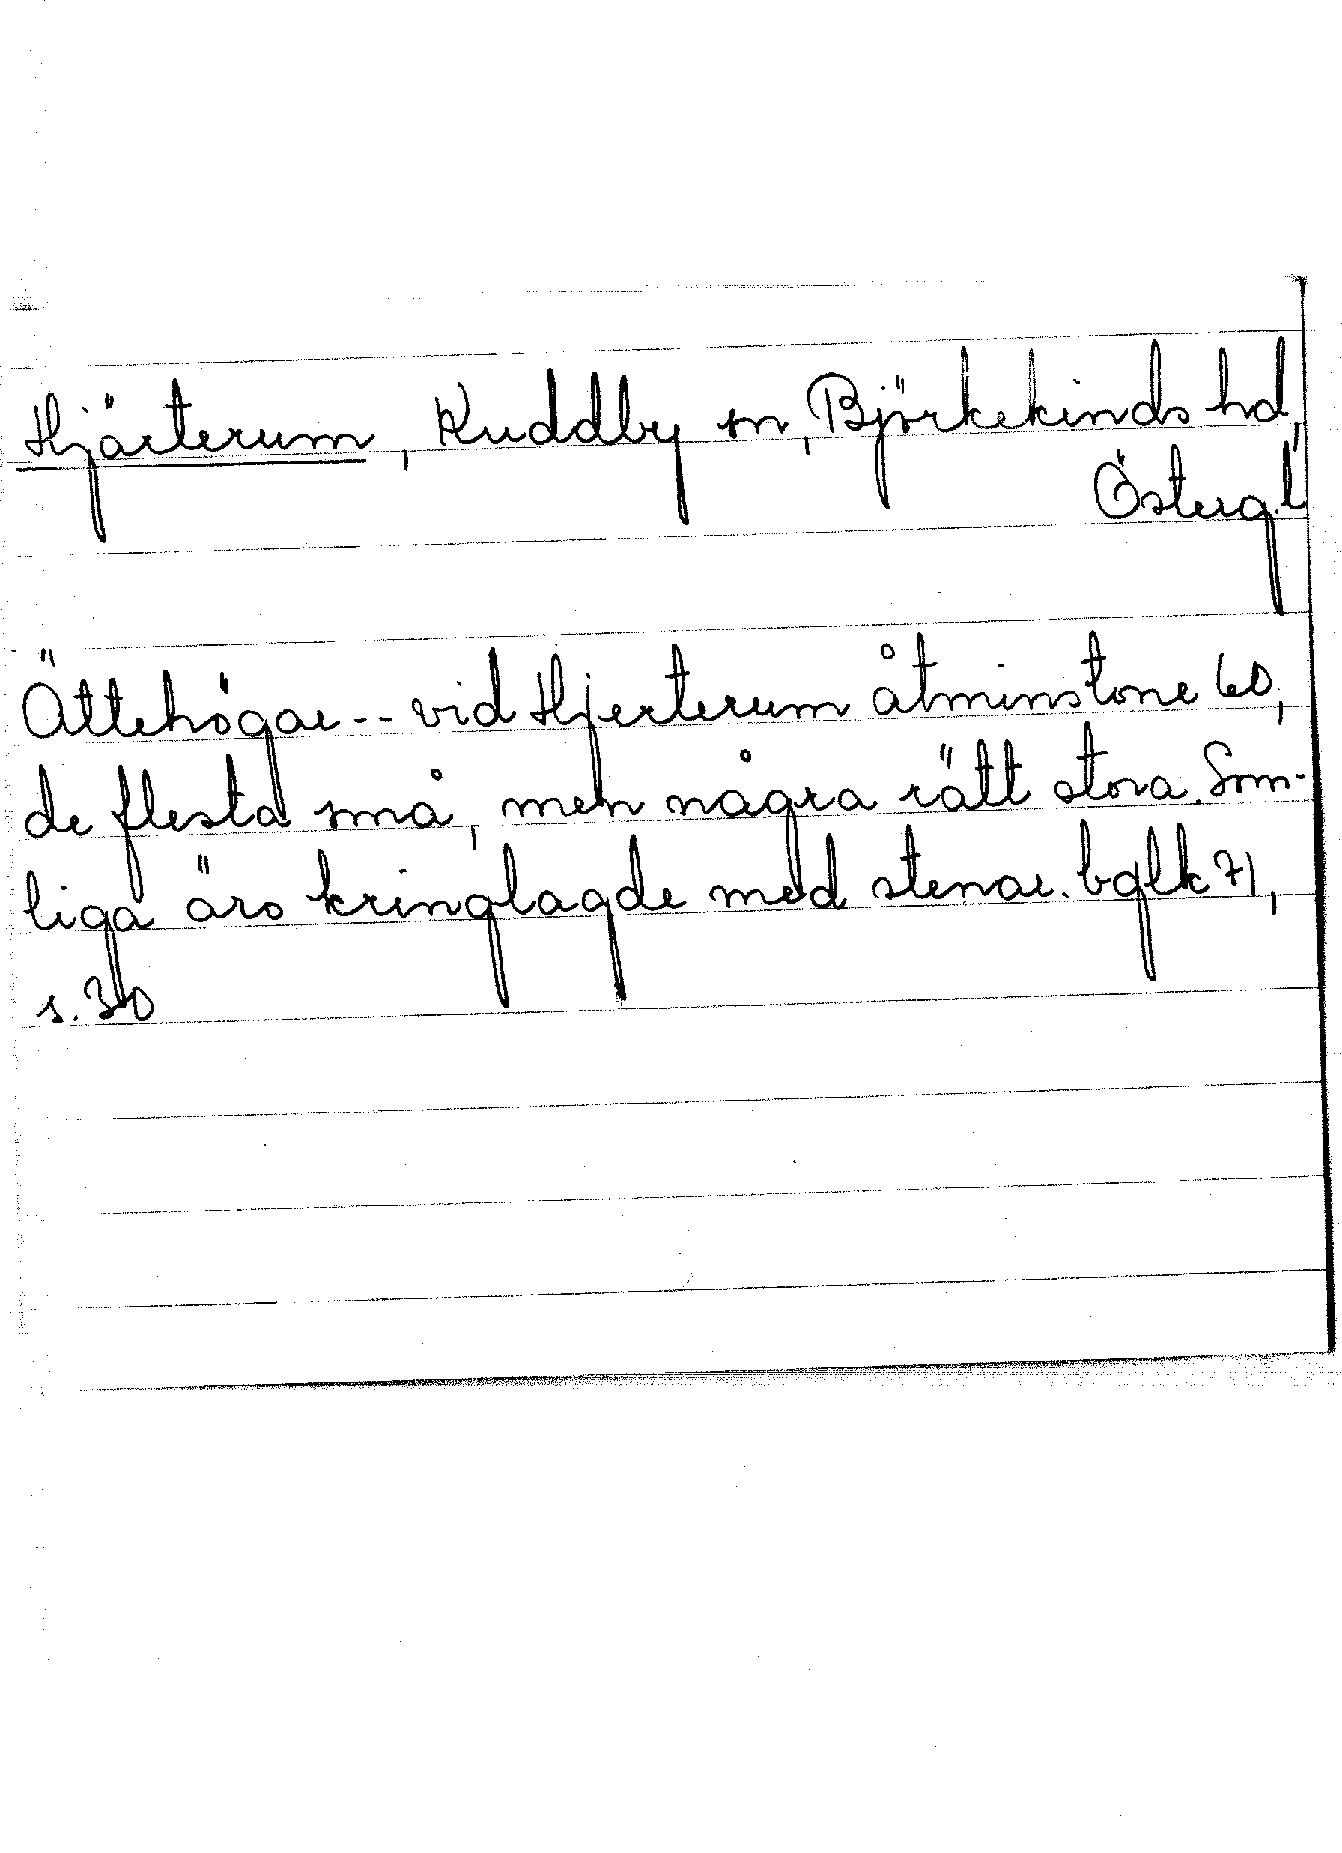 Hjärterum, Kuddby sn, Björkekinds hd,
Österg.l
Ättehögar -- vid Hjerterum åtminstone 60,
de flesta små, men några rätt stora. Som-
liga äro kringlagde med stenar. bglk 71,
s. 30